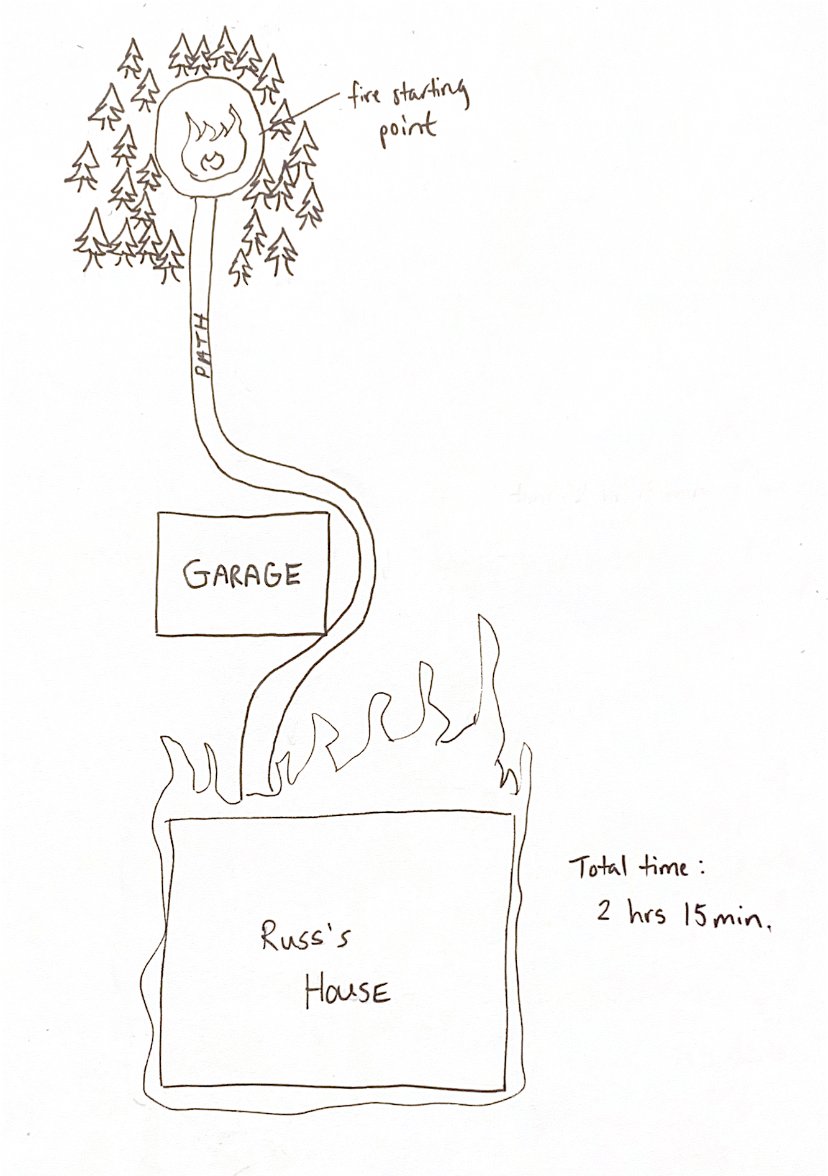 fire starting
point
PATH
GARAGE
Russ's
House
Total time:
2 hrs 15min.